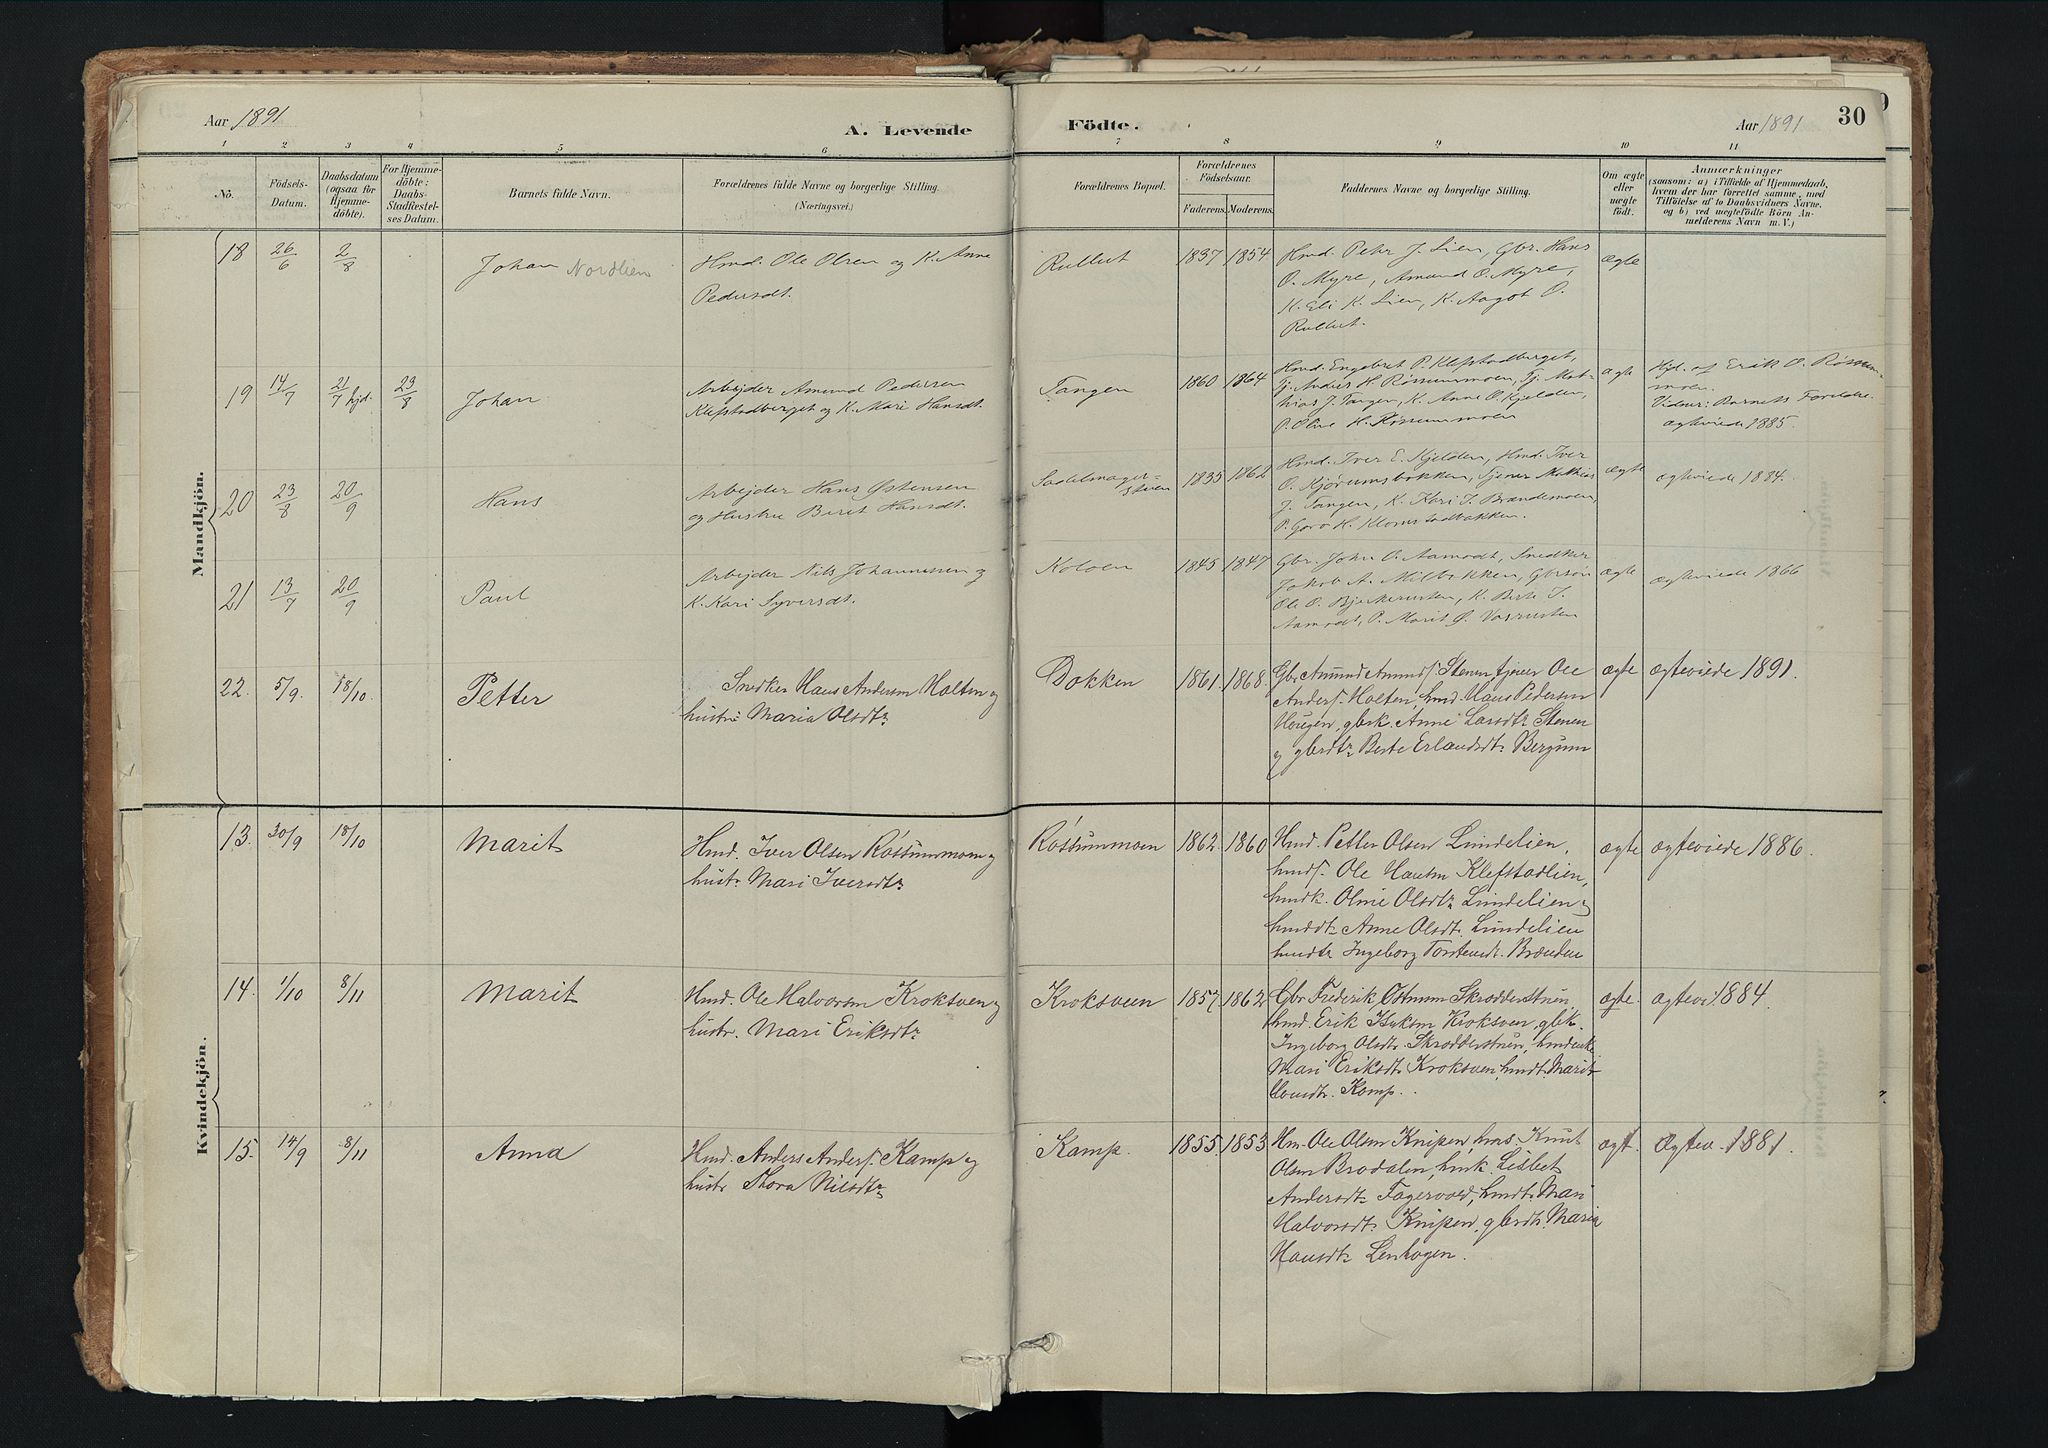 Aar 1891
A. Levende
Födte.
Aar 1891
30
1 2 3 4 5 6 7 8 9 10 11
No.
Födsels-
Datum.
Daabsdatum
(ogsaa for
Hjemme-
döbte).
For Hjemme-
döbte:
Daabs-
Stadfæstel-
ses Datum.
Barnets fulde Navn.
Forældrenes fulde Navne og borgerlige Stilling.
(Næringsvei.)
Forældrenes Bopæl.
Forældrenes
Födselsaar.
Faderens. Moderens.
Faddernes Navne og borgerlige Stilling.
Om ægte
eller
uægte
födt.
Anmærkninger
(saasom: a) i Tilfælde af Hjemmedaab,
hvem der har forrettet samme, med
Tilföielse af to Daabsvidners Navne,
og b) ved uægtefödte Börn An-
melderens Navn m. V.)
Mandkjön.
18 26/6 2/8
Johan Nordlien
Hmd. Ole Olsen og K. Anne
Pedersdt.
Rullut
1837 1854
Hmd. Peter J. Lien, Gbr. Hans
O. Myre, Amund O. Myre,
K. Eli K. Lien, K. Aagot O.
Rullut.
ægte
19 14/7 21/7 hjd. 23/8
Johan
Arbejder Amund Pedersen
Klefstadberget og K. Mari Hansdt.
Tangen
1860 1864
Hmd. Engebret P. Klefstadberget,
Tj. Anders H. Røssummoen, Tj. Mat-
hias J. Tangen, K. Anne O. Kjelden,
P. Oline H. Røssummoen
ægte
Hjd. af Erik O. Røssum-
moen.
Vidner: Barnets Forældre.
ægteviede 1885.
20 23/8 20/9
Hans
Arbejder Hans Østensen
og Hustru Berit Hansdt.
Sadelmager-
stuen
1835 1862
Hmd. Iver E. Kjelden, Hmd. Iver
O. Kjørumsbakken, Tjener Mathias
J. Tangen, K. Kari I. Brændemoen,
P. Goro H. Klomstadbakken.
ægte
ægteviede 1884.
21 13/7 20/9
Paul
Arbejder Nils Johannessen og
K. Kari Syversdt.
Koloen
1845 1847
Gbr. John O. Aamodt, Snedker
Jakob A. Milbakken, Gbrsøn
Ole O. Bjerkerusten, K. Berte I.
Aamodt, P. Marit O. Vasrusten
ægte
ægteviede 1866
22. 5/9. 18/10.
Petter
Snedker Hans Andersen Holten og
hustr: Maria Olsdtr
Dokken
1861. 1868.
Gbr Amund Amunds. Stenen, tjener Ole
Anders. Holten, hmd. Hans Pedersen
Hougen, gbrk. Anne Larsdtr Stenen
og gbrdtr Berte Erlandsdtr Bergum
ægte
ægteviede 1891.
Kvindekjön.
13. 30/9 18/10
Marit
Hmd. Iver Olsen Røssummoen og
hustr. Mari Iversdtr
Røssummoen
1862. 1860
Hmd. Petter Olsen Lindelien,
hmds. Ole Hansen Klefstadlien,
hmdk. Oline Olsdtr Lindelien og
hmddtr Anne Olsdt. Lindelien
hmdtr Ingeborg Torstensdt. Brænden
ægte
ægteviede 1886.
14. 1/10 8/11
Marit
Hmd. Ole Halvorsen Kroksveen og
hustr. Mari Eriksdtr
Kroksveen
1857. 1862.
Gbr Frederik Ostensen Skrædderstuen,
hmd. Erik Kroksven, gbk.
Ingeborg Olsdtr. Skrædderstuen, hmdenke
Mari Eriksdtr Kroksven, hmdt. Marit
Kamp.
ægte.
ægtevi. 1884.
15. 14/9 8/11
Anna
Hmd. Anders Anders. Kamp og
hustr Thora Nilsdtr
Kamp.
1855. 1853
Hm. Ole Olsen Knipen, hms. Knut
Olsen Brodalen, hmk. Lisbet
Andersdtr Fagervold, hmdt. Mari
Halvorsdtr Knipen, gbrdt. Maria
Hansdtr Lenhagen.
ægt.
Ægtev. 1881.